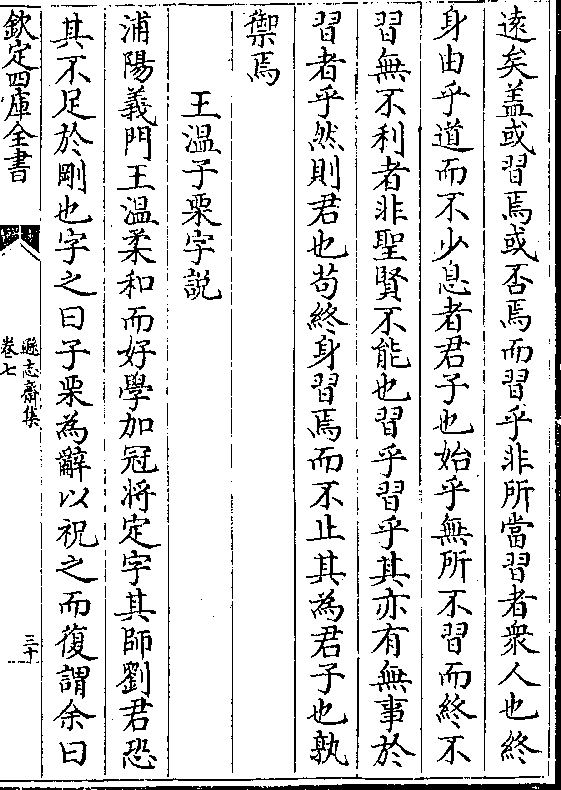 逺矣盖或習焉或否焉而習乎非所當習者衆人也終
身由乎道而不少息者君子也始乎無所不習而終不
習無不利者非聖賢不能也習乎習乎其亦有無事於
習者乎然則君也苟終身習焉而不止其為君子也孰
禦焉
王溫子栗字説
浦陽義門王溫柔和而好學加冠将定字其師劉君恐
其不足於剛也字之曰子栗為辭以祝之而復謂余曰
欽定四庫全書
遜志齋集
卷七
三十